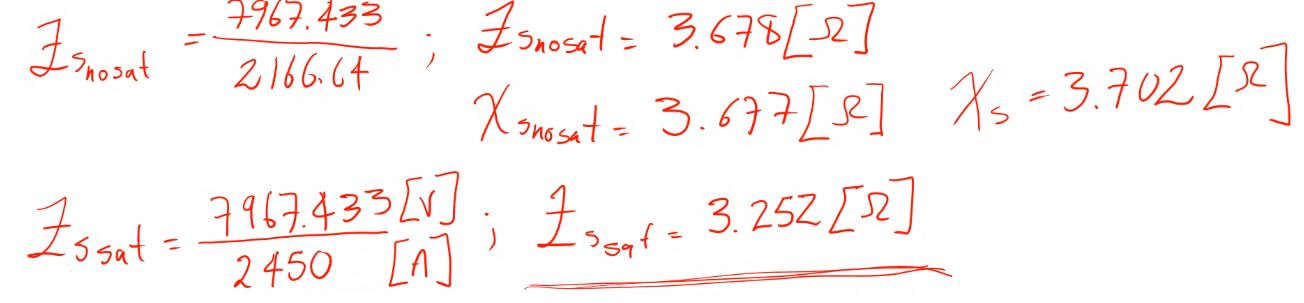 Z_snosat = 7967.433 / 2166.64 ; Z_snosat = 3.678 [Ω]
X_snosat = 3.677 [Ω] X_s = 3.702 [Ω]
Z_ssat = 7967.433 [V] / 2450 [A] ; Z_ssat = 3.252 [Ω]